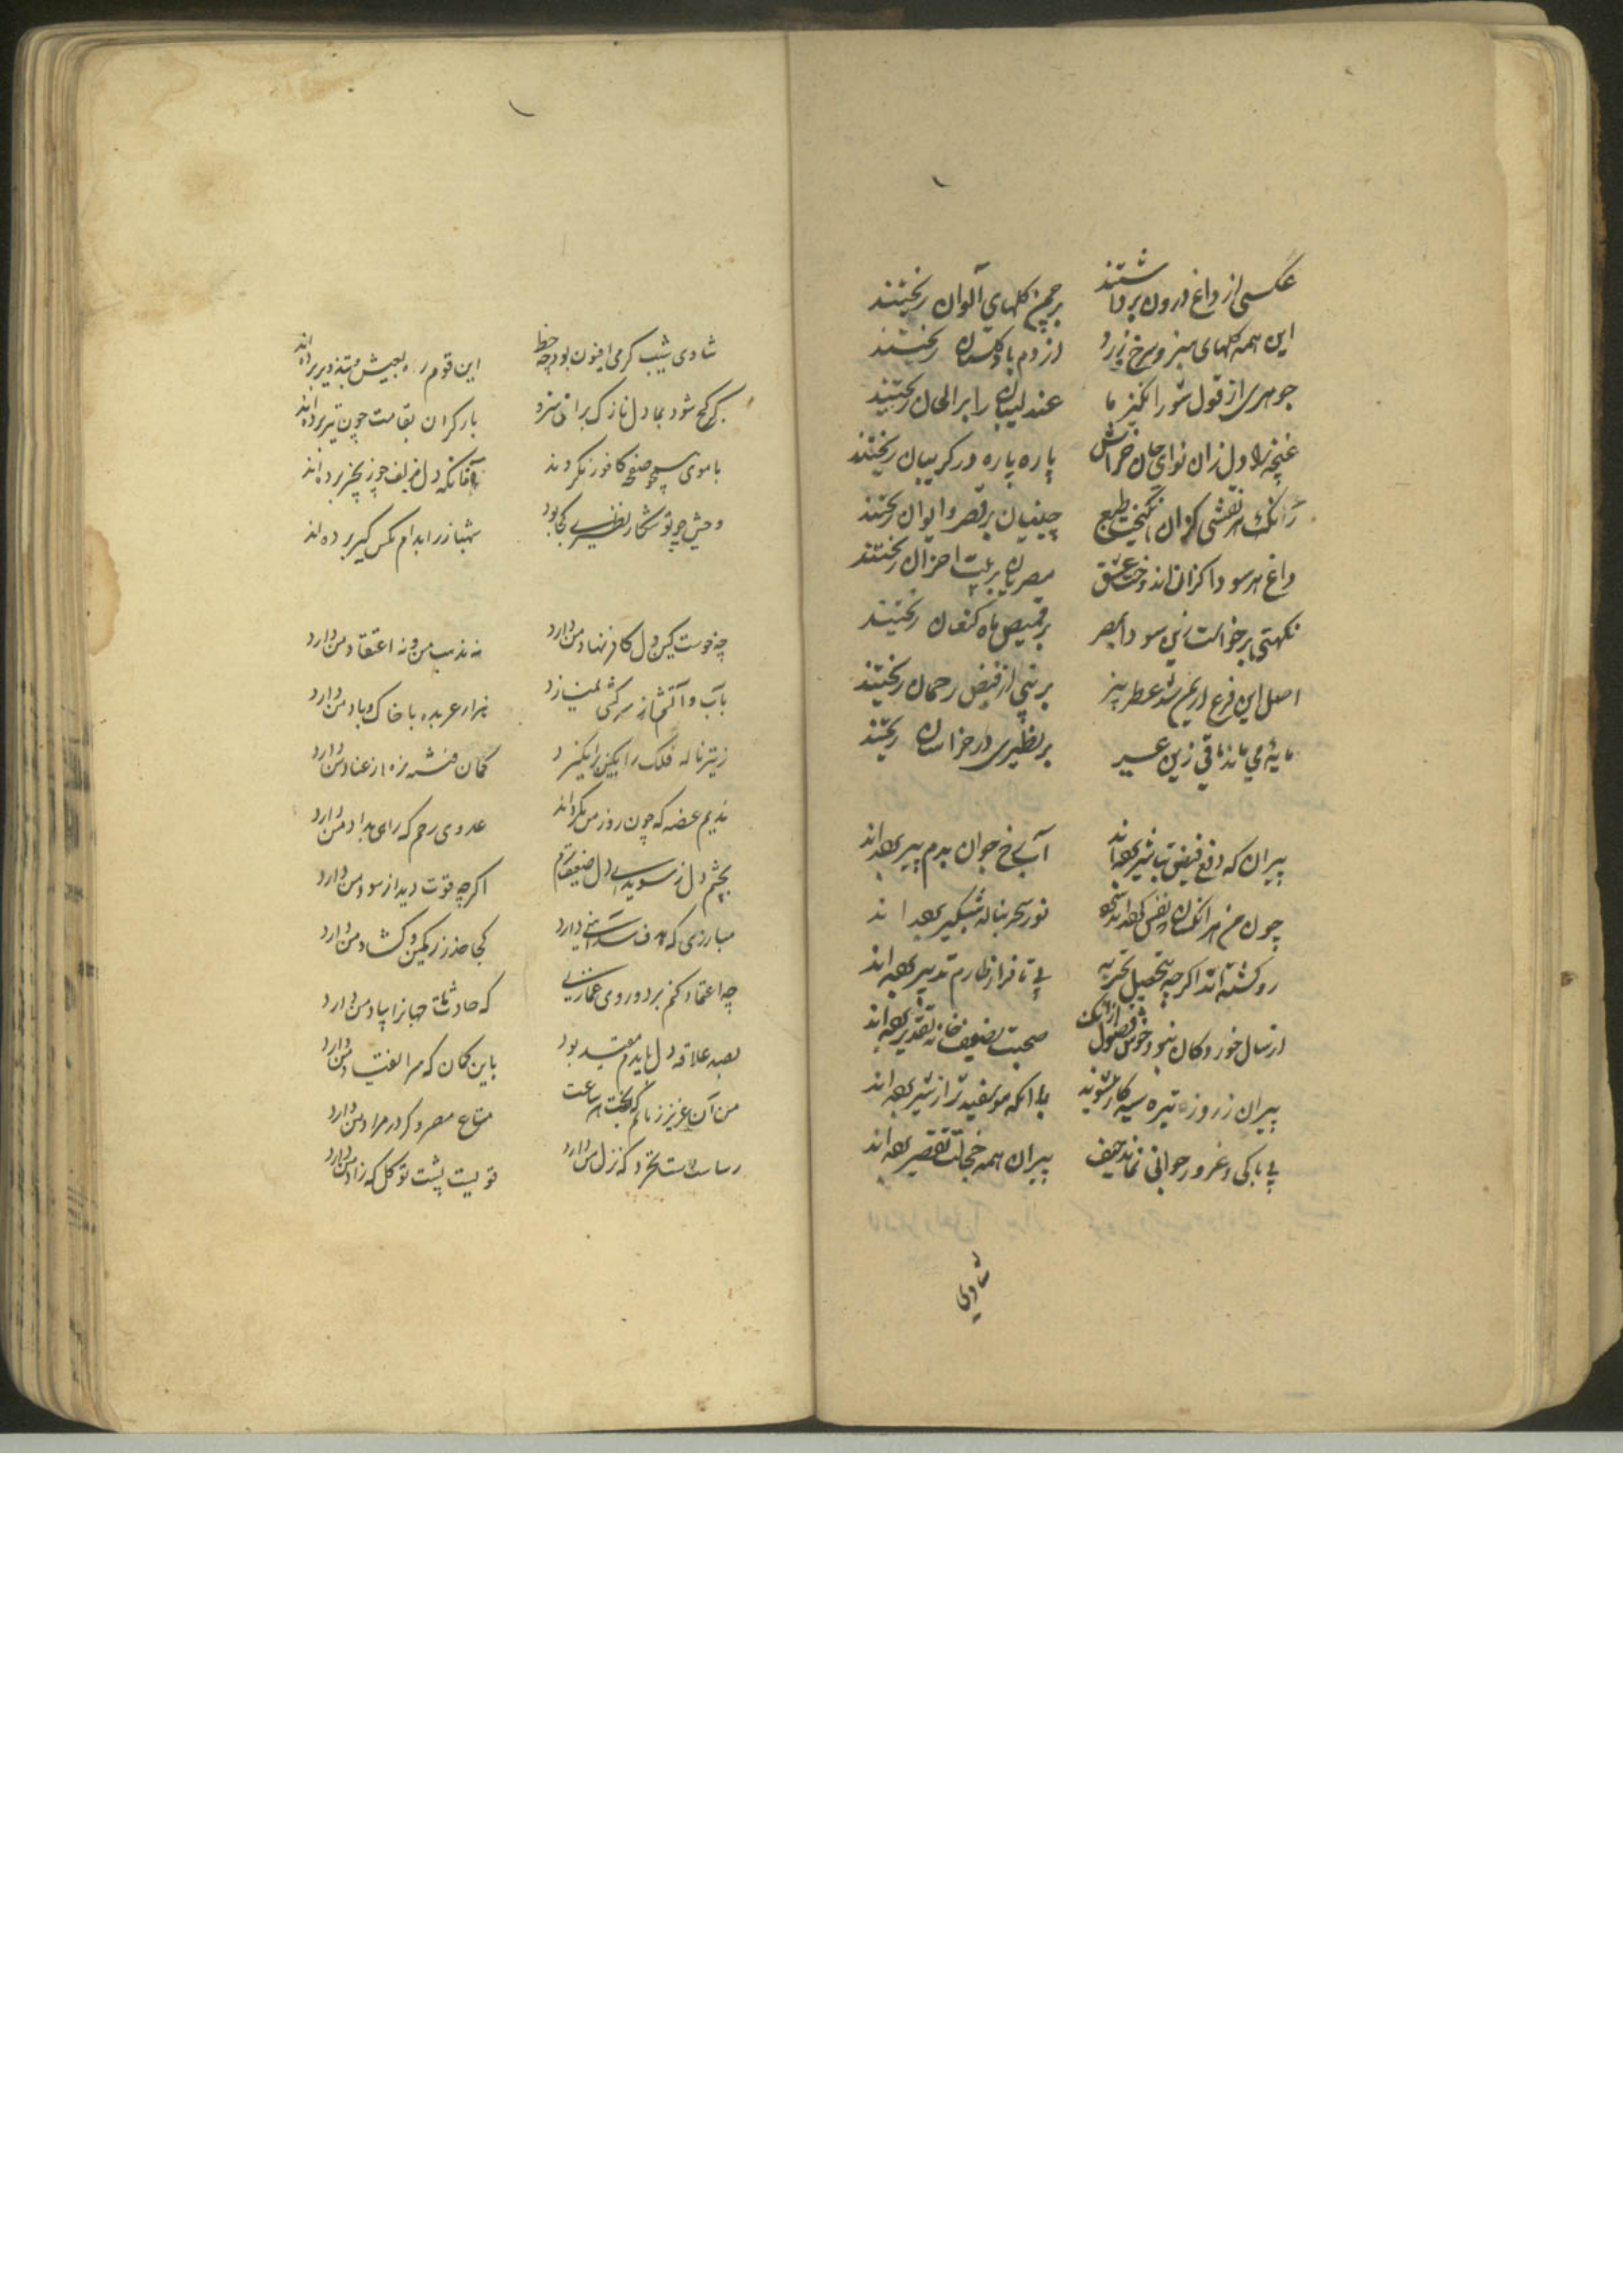 عکسی از داغ درون برداشتند برچمن گلهای الوان ریختند
این همه گلهای سبز و سرخ و زرد از دم باد گلستان ریختند
جوهری از قول شورانگیز ما عندلیبان را بر الحان ریختند
غنچه را دل زان نوای جان خراش پاره پاره در گریبان ریختند
رنگ هر نقشی کزان انگیخت طبع چینیان بر قصر و ایوان ریختند
داغ هر سودا کزان اندوخت عشق مصریان بر بیت احزان ریختند
نکهتی بر خواست زین سودا بمصر بر قمیص ماه کنعان ریختند
اصل این فرع اریم شد عطر بیز بر نبی از فیض رحمان ریختند
مایه می ماند باقی زین عبیر بر نظیری در خراسان ریختند
پیران که فیض بتاثیر برده اند آب رخ جوان بدم پیر برده اند
چون من هر انکسان نفس نور سحر بناله شبگیر برده اند
رو گشته اند اگر چه بتحصیل تجربه پی تا فراز طارم تدبیر برده اند
از سال خوردگان صحبت بضعف خانه تقدیر برده اند
پیران ز روز تیره سیه کار میشوند با آنکه مو سفیدتر از شیر برده اند
بی باکی و غرور جوانی نماند حیف پیران همه خجالت تقصیر برده اند
شادی
شادی شیب گرمی افیون بود چه حظ این قوم ره بعیش بتذویر برده اند
کج شود بما دل نازک برای سرو بار گران بقامت چون تیر برده اند
با موی همچو صفحه کافور نگروند آنانکه دل بزلف چو زنجیر برده اند
وحشی چو تو شکار نظیری کجا بود شهباز را بدام مگس گیر برده اند
چه خوست کین دل کافر نهاد من دارد نه مذهب من و نه اعتقاد من دارد
بآب و آتشم از سرکشی نمیسازد هزار عربده با خاک و باد من دارد
ز تیر ناله فلک را بکین برانگیزد کمان بزه از عناد من دارد
ندیم غصه که چون روز من بگرداند عدوی رحم که رای بداد من دارد
بچشم دل ز سویدای دل ضعیف ترم اگر چه قوت دید از سواد من دارد
مبارزی که هدف دارد کجا حذر ز کمین و گشاد من دارد
چه اعتماد کنم بر دوروی غمازی که حادثات جهان را بیاد من دارد
بصد علاقه دل باید مقید بود باین گمان که سر الفت و من دارد
من آن عزیز زیانم که متاع مصر و در مراد من دارد
رساست خرد که نزل من دارد قویست پشت توکل که زاد من دارد